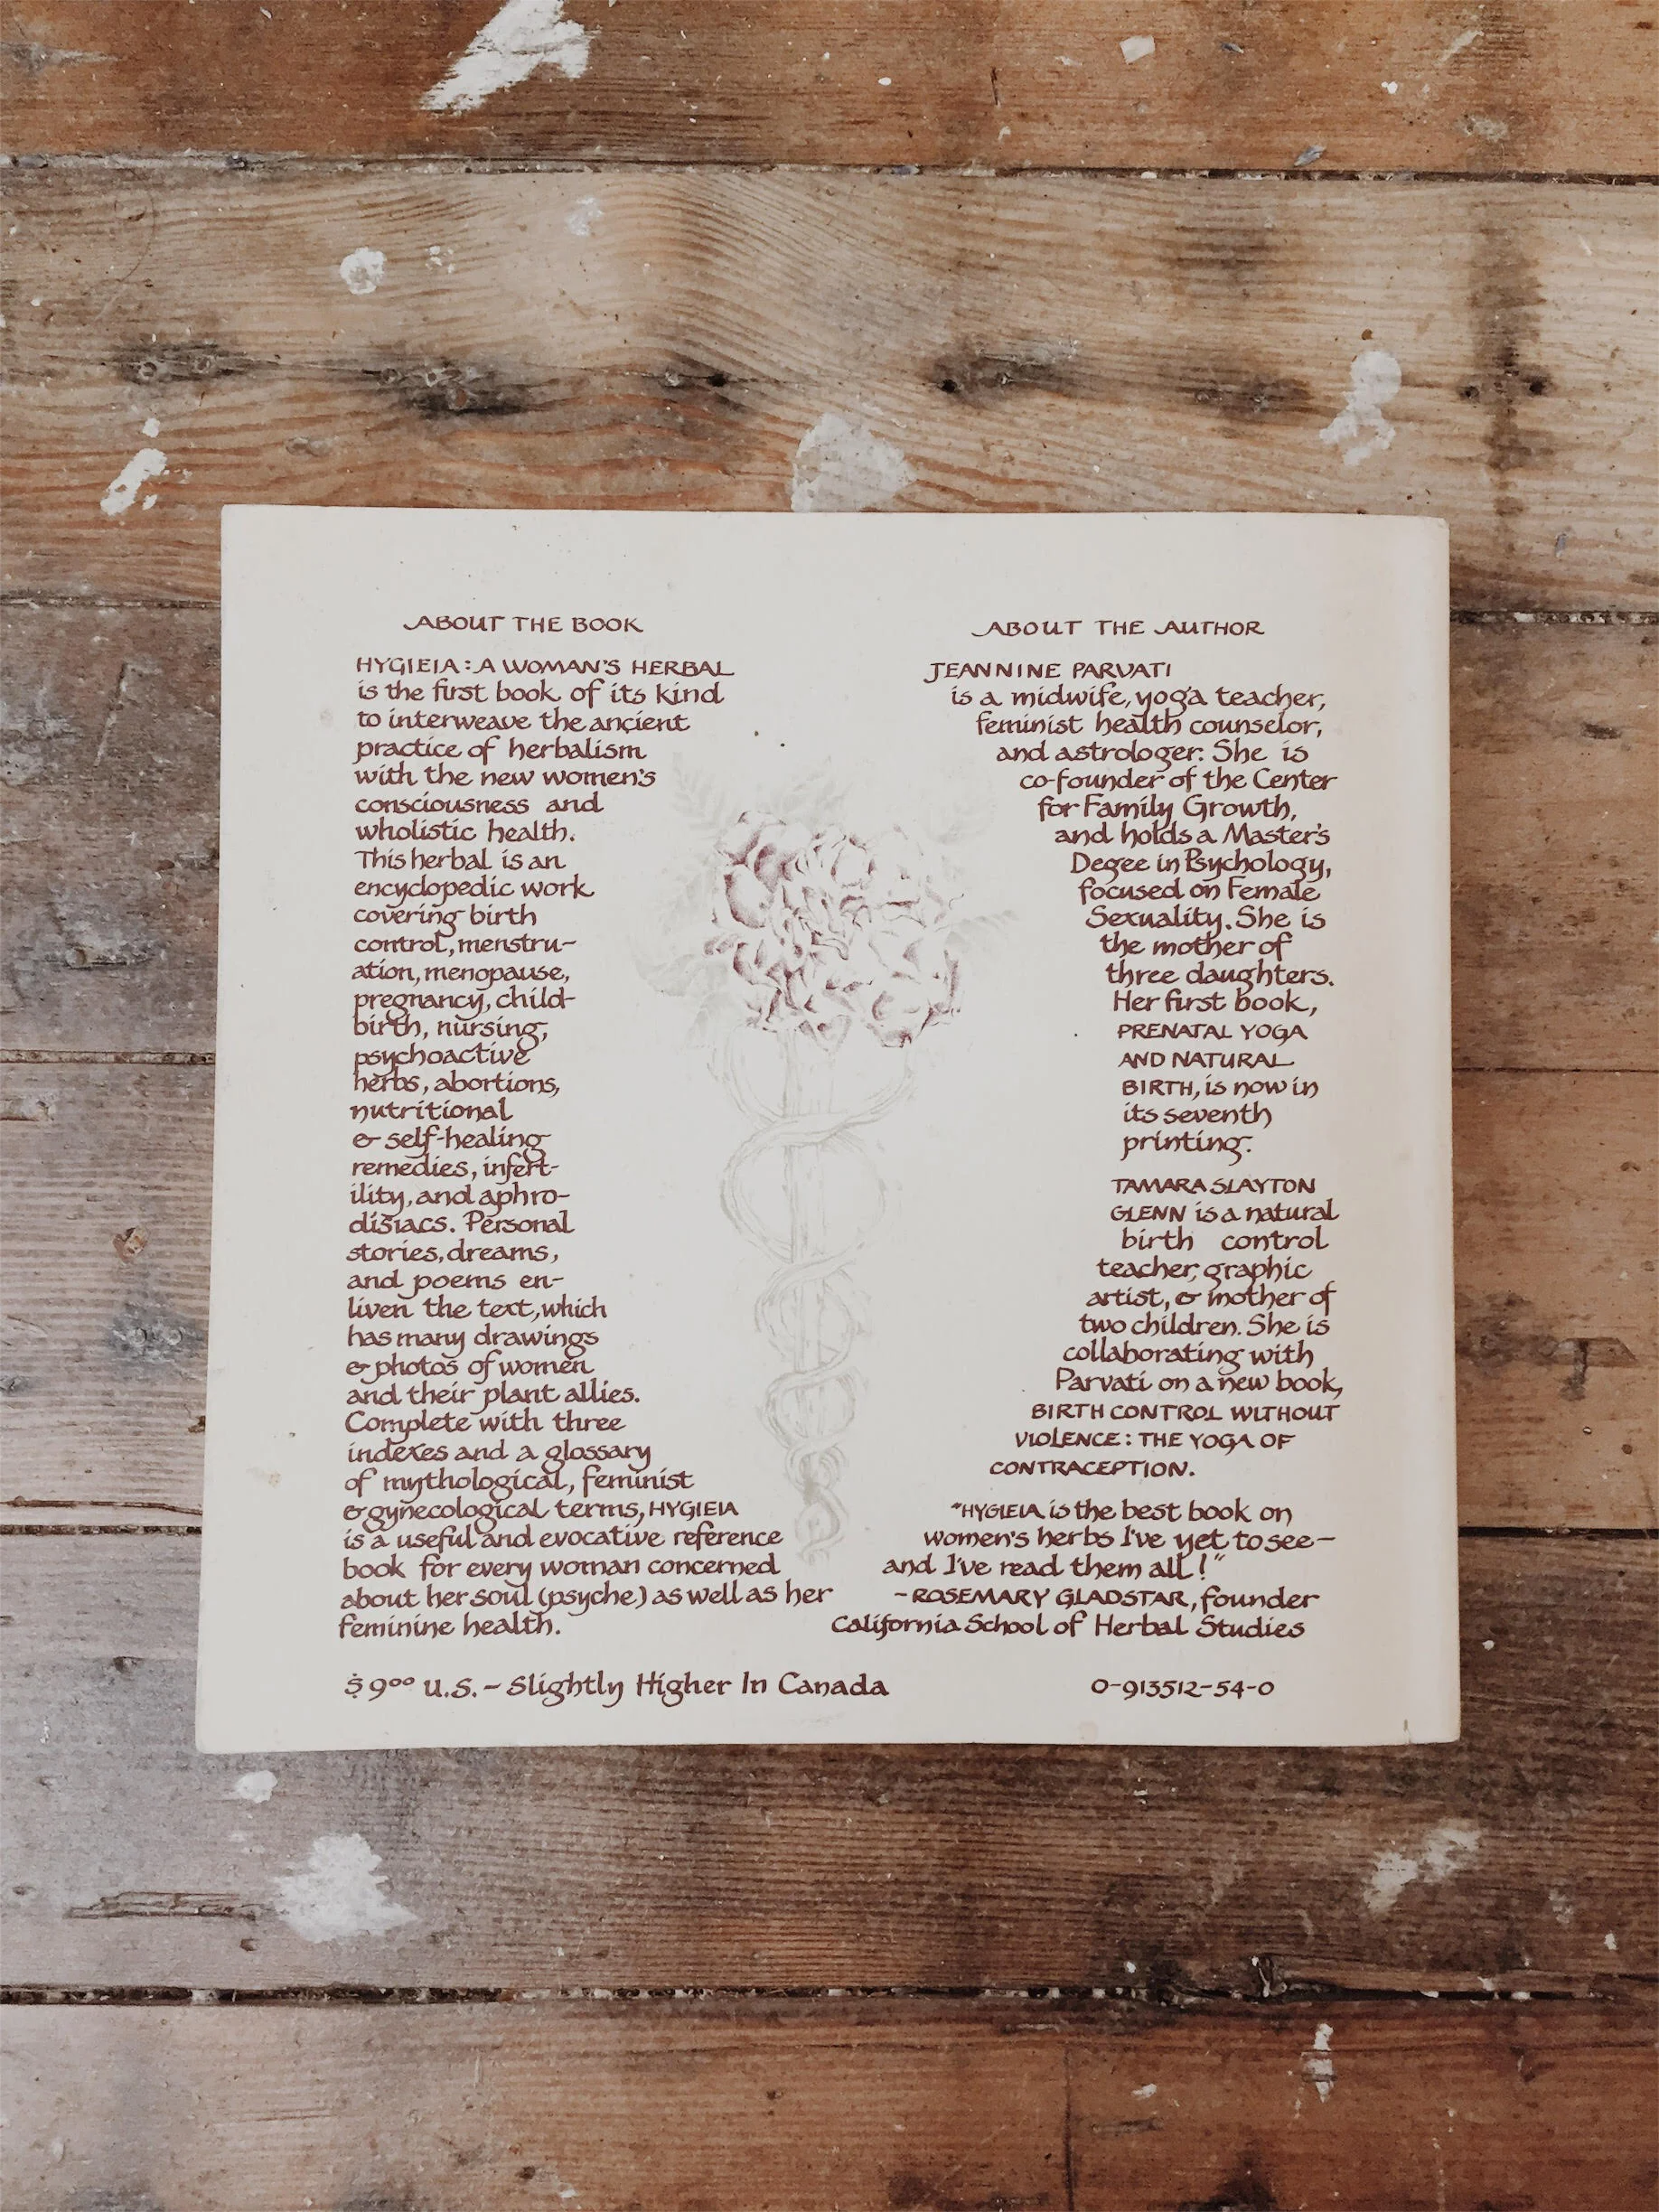 ABOUT THE BOOK
HYGIEIA: A WOMAN'S HERBAL
is the first book of its kind
to interweave the ancient
practice of herbalism
with the new women's
consciousness and
wholistic health.
This herbal is an
encyclopedic work
covering birth
control, menstru-
ation, menopause,
pregnancy, child-
birth, nursing,
psychoactive
herbs, abortions,
nutritional
& self-healing
remedies, infert-
ility, and aphro-
disiacs. Personal
stories, dreams,
and poems en-
liven the text, which
has many drawings
& photos of women
and their plant allies.
Complete with three
indexes and a glossary
of mythological, feminist
& gynecological terms, HYGIEIA
is a useful and evocative reference
book for every woman concerned
about her soul (psyche) as well as her
feminine health.
$9.00 U.S. – Slightly Higher In Canada
ABOUT THE AUTHOR
JEANNINE PARVATI
is a midwife, yoga teacher,
feminist health counselor,
and astrologer. She is
co-founder of the Center
for Family Growth,
and holds a Master's
Degee in Psychology,
focused on Female
Sexuality. She is
the mother of
three daughters.
Her first book,
PRENATAL YOGA
AND NATURAL
BIRTH, is now in
its seventh
printing.
TAMARA SLAYTON
GLENN is a natural
birth control
teacher, graphic
artist, & mother of
two children. She is
collaborating with
Parvati on a new book,
BIRTH CONTROL WITHOUT
VIOLENCE: THE YOGA OF
CONTRACEPTION.
"HYGIEIA is the best book on
women's herbs I've yet to see—
and I've read them all!"
– ROSEMARY GLADSTAR, founder
California School of Herbal Studies
0-913512-54-0